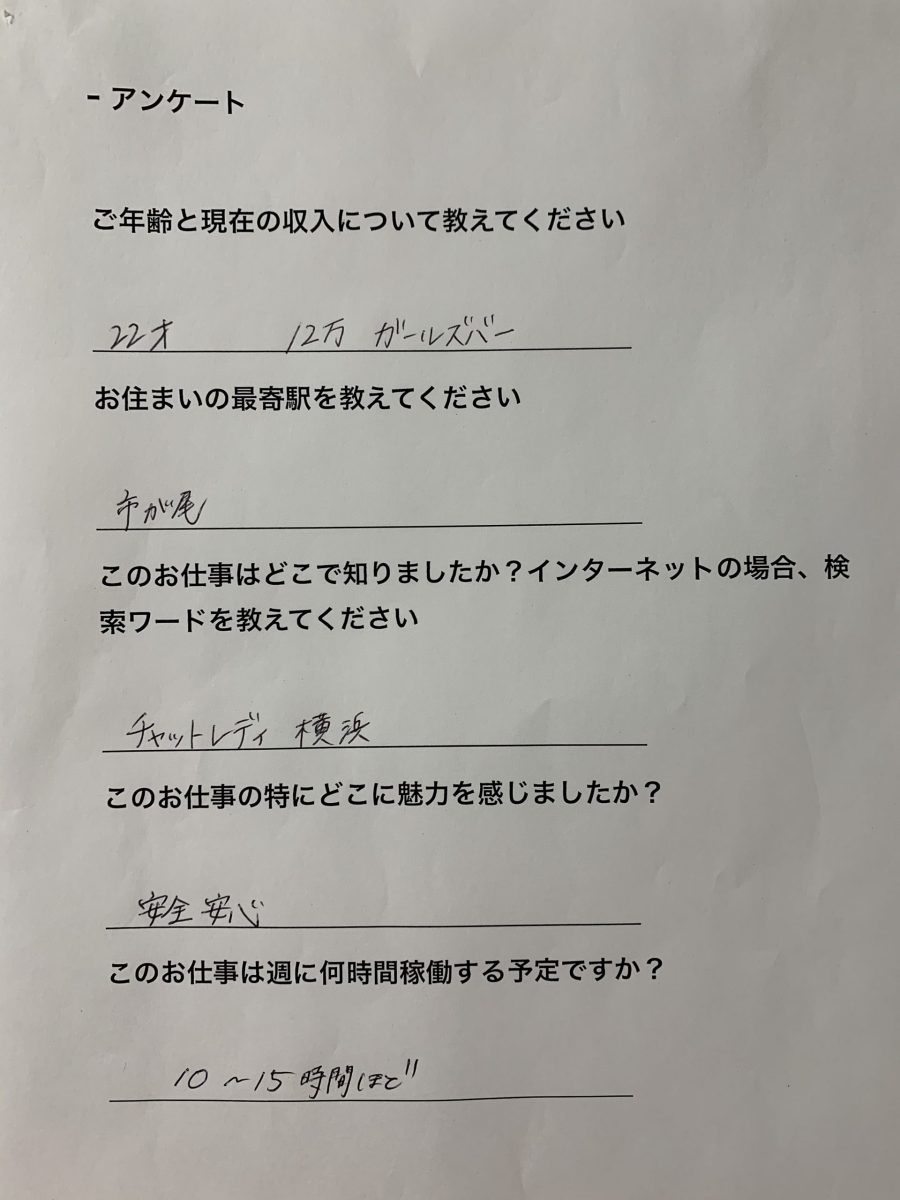 - アンケート
ご年齢と現在の収入について教えてください
22才 12万 ガールズバー
お住まいの最寄駅を教えてください
市が尾
このお仕事はどこで知りましたか？インターネットの場合、検
索ワードを教えてください
チャットレディ 横浜
このお仕事の特にどこに魅力を感じましたか？
安全安心
このお仕事は週に何時間稼働する予定ですか？
10〜15時間ほど